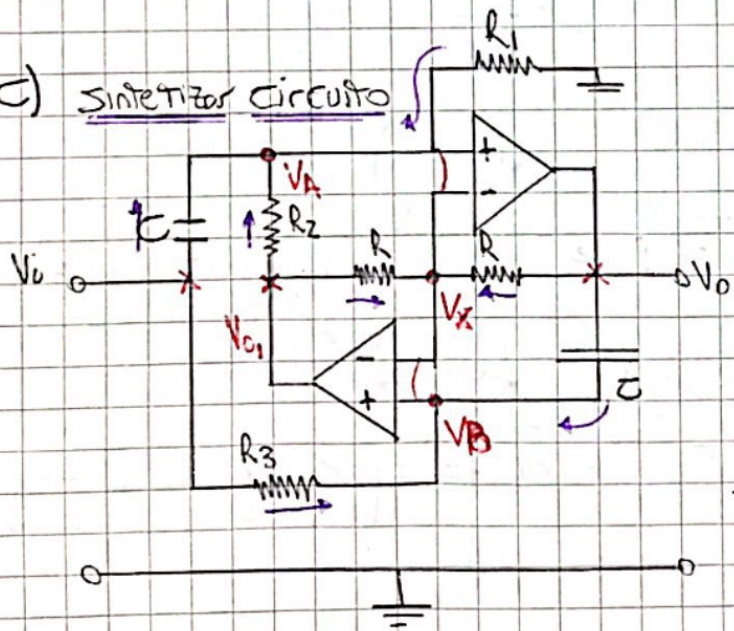 C) Sintetizar Circuito
R1
+
VA
-
C
R2
Vi
R
R
Vo
Vo1
VX
-
+
C
VB
R3